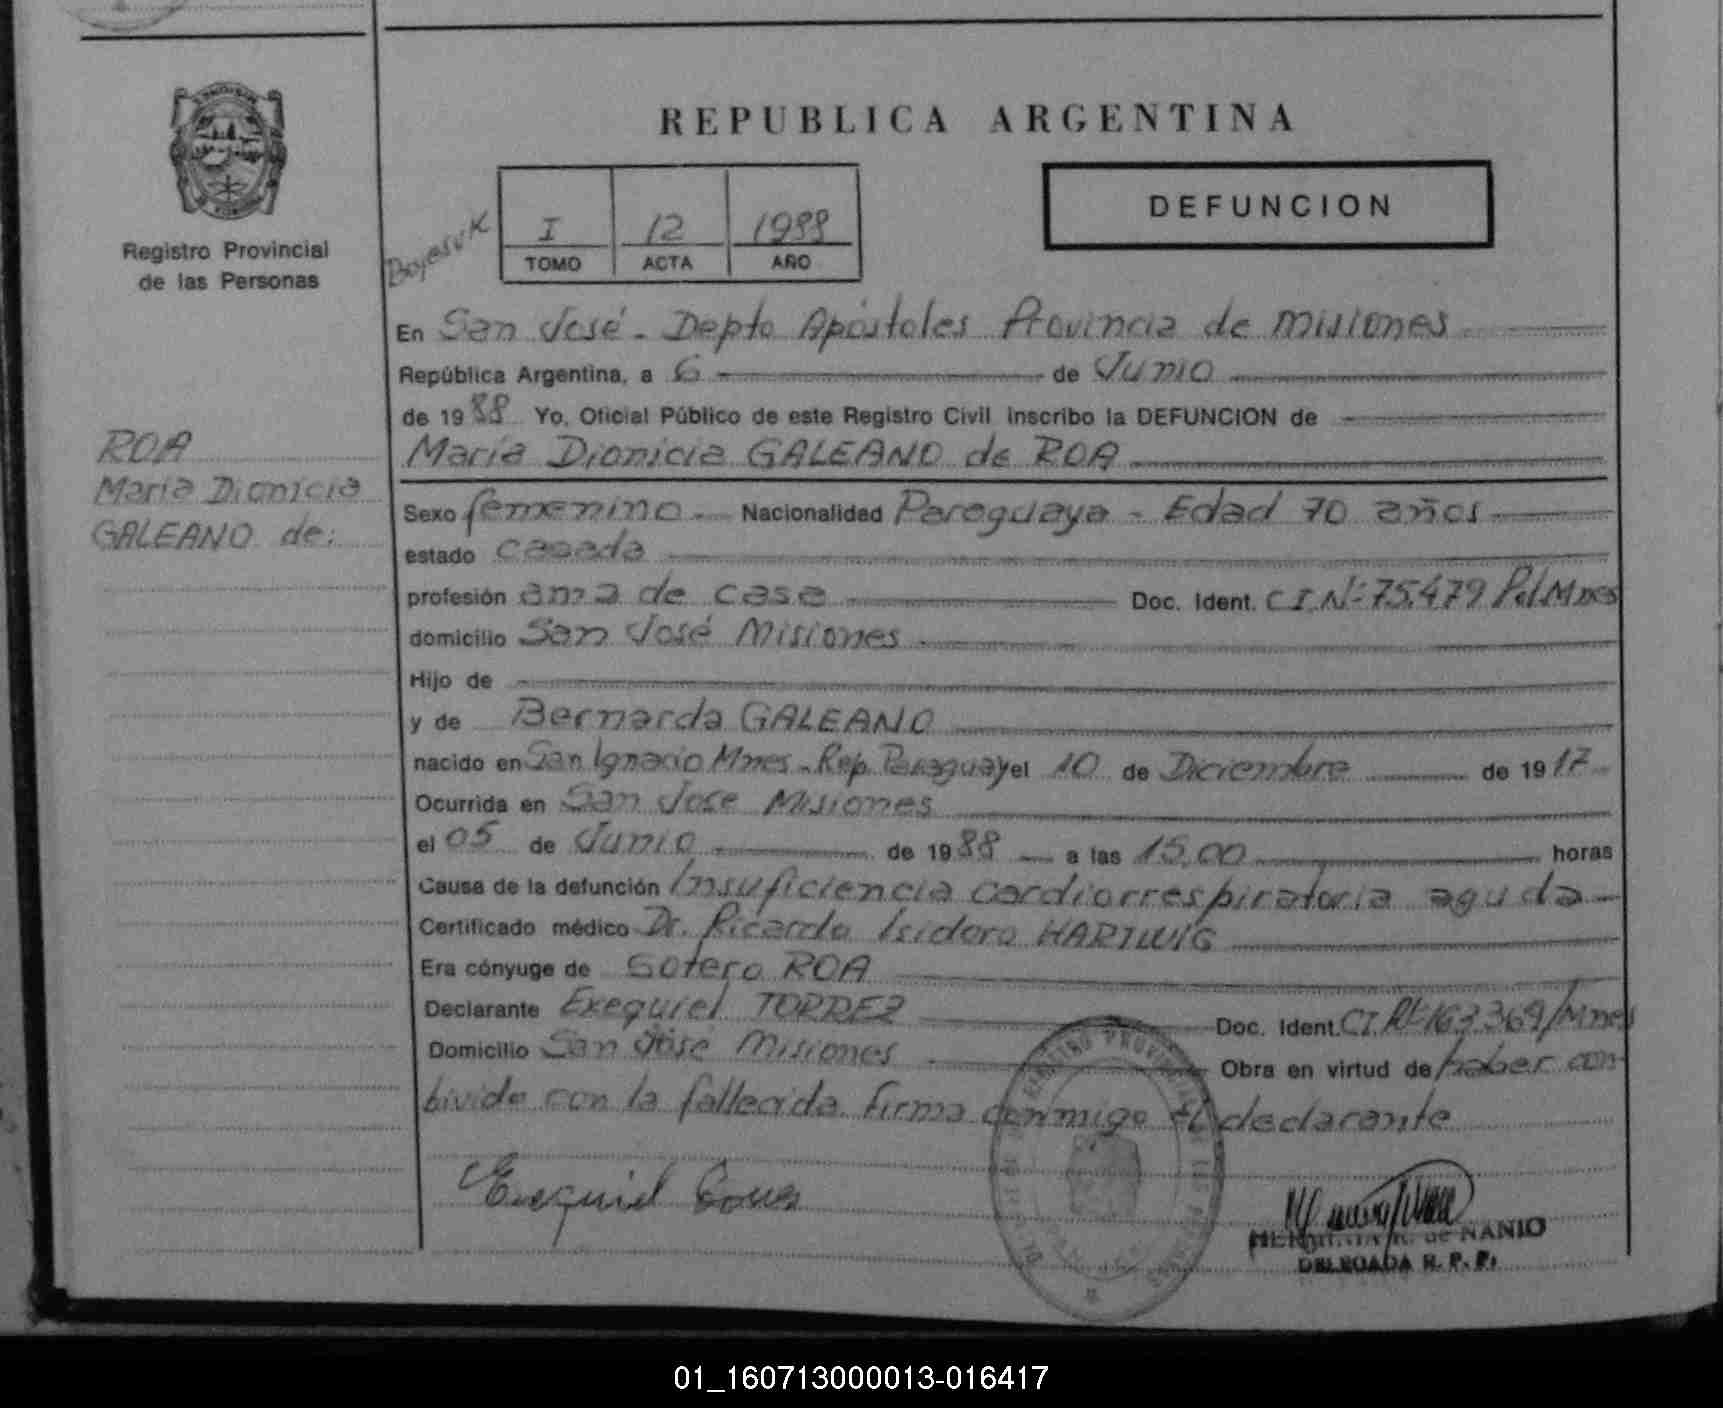 REPUBLICA ARGENTINA
Registro Provincial
de las Personas
I 12 1988
TOMO ACTA AÑO
DEFUNCION
En San José - Depto Apóstoles Provincia de Misiones
República Argentina, a 6 de Junio
de 1988 Yo, Oficial Público de este Registro Civil inscribo la DEFUNCION de
María Dionicia GALEANO de ROA
ROA
María Dionicia
GALEANO de:
Sexo femenino - Nacionalidad Paraguaya - Edad 70 años
estado casada
profesión ama de casa Doc. Ident. C.I.Nº 75.479 Pol.Mnes
domicilio San José Misiones
Hijo de
y de Bernarda GALEANO
nacido en San Ignacio Mnes - Rep. Paraguay el 10 de Diciembre de 1917
Ocurrida en San Jose Misiones
el 05 de Junio de 1988 a las 15,00 horas
Causa de la defunción Insuficiencia cardiorrespiratoria aguda -
Certificado médico Dr. Ricardo Isidoro HARTWIG
Era cónyuge de Sotero ROA
Declarante Exequiel TORREZ Doc. Ident. C.I.Nº 163369/Mnes
Domicilio San José Misiones Obra en virtud de haber con
bivido con la fallecida. Firma conmigo el declarante
Exequiel
de NANIO
DELEGADA R. P. P.
01_160713000013-016417